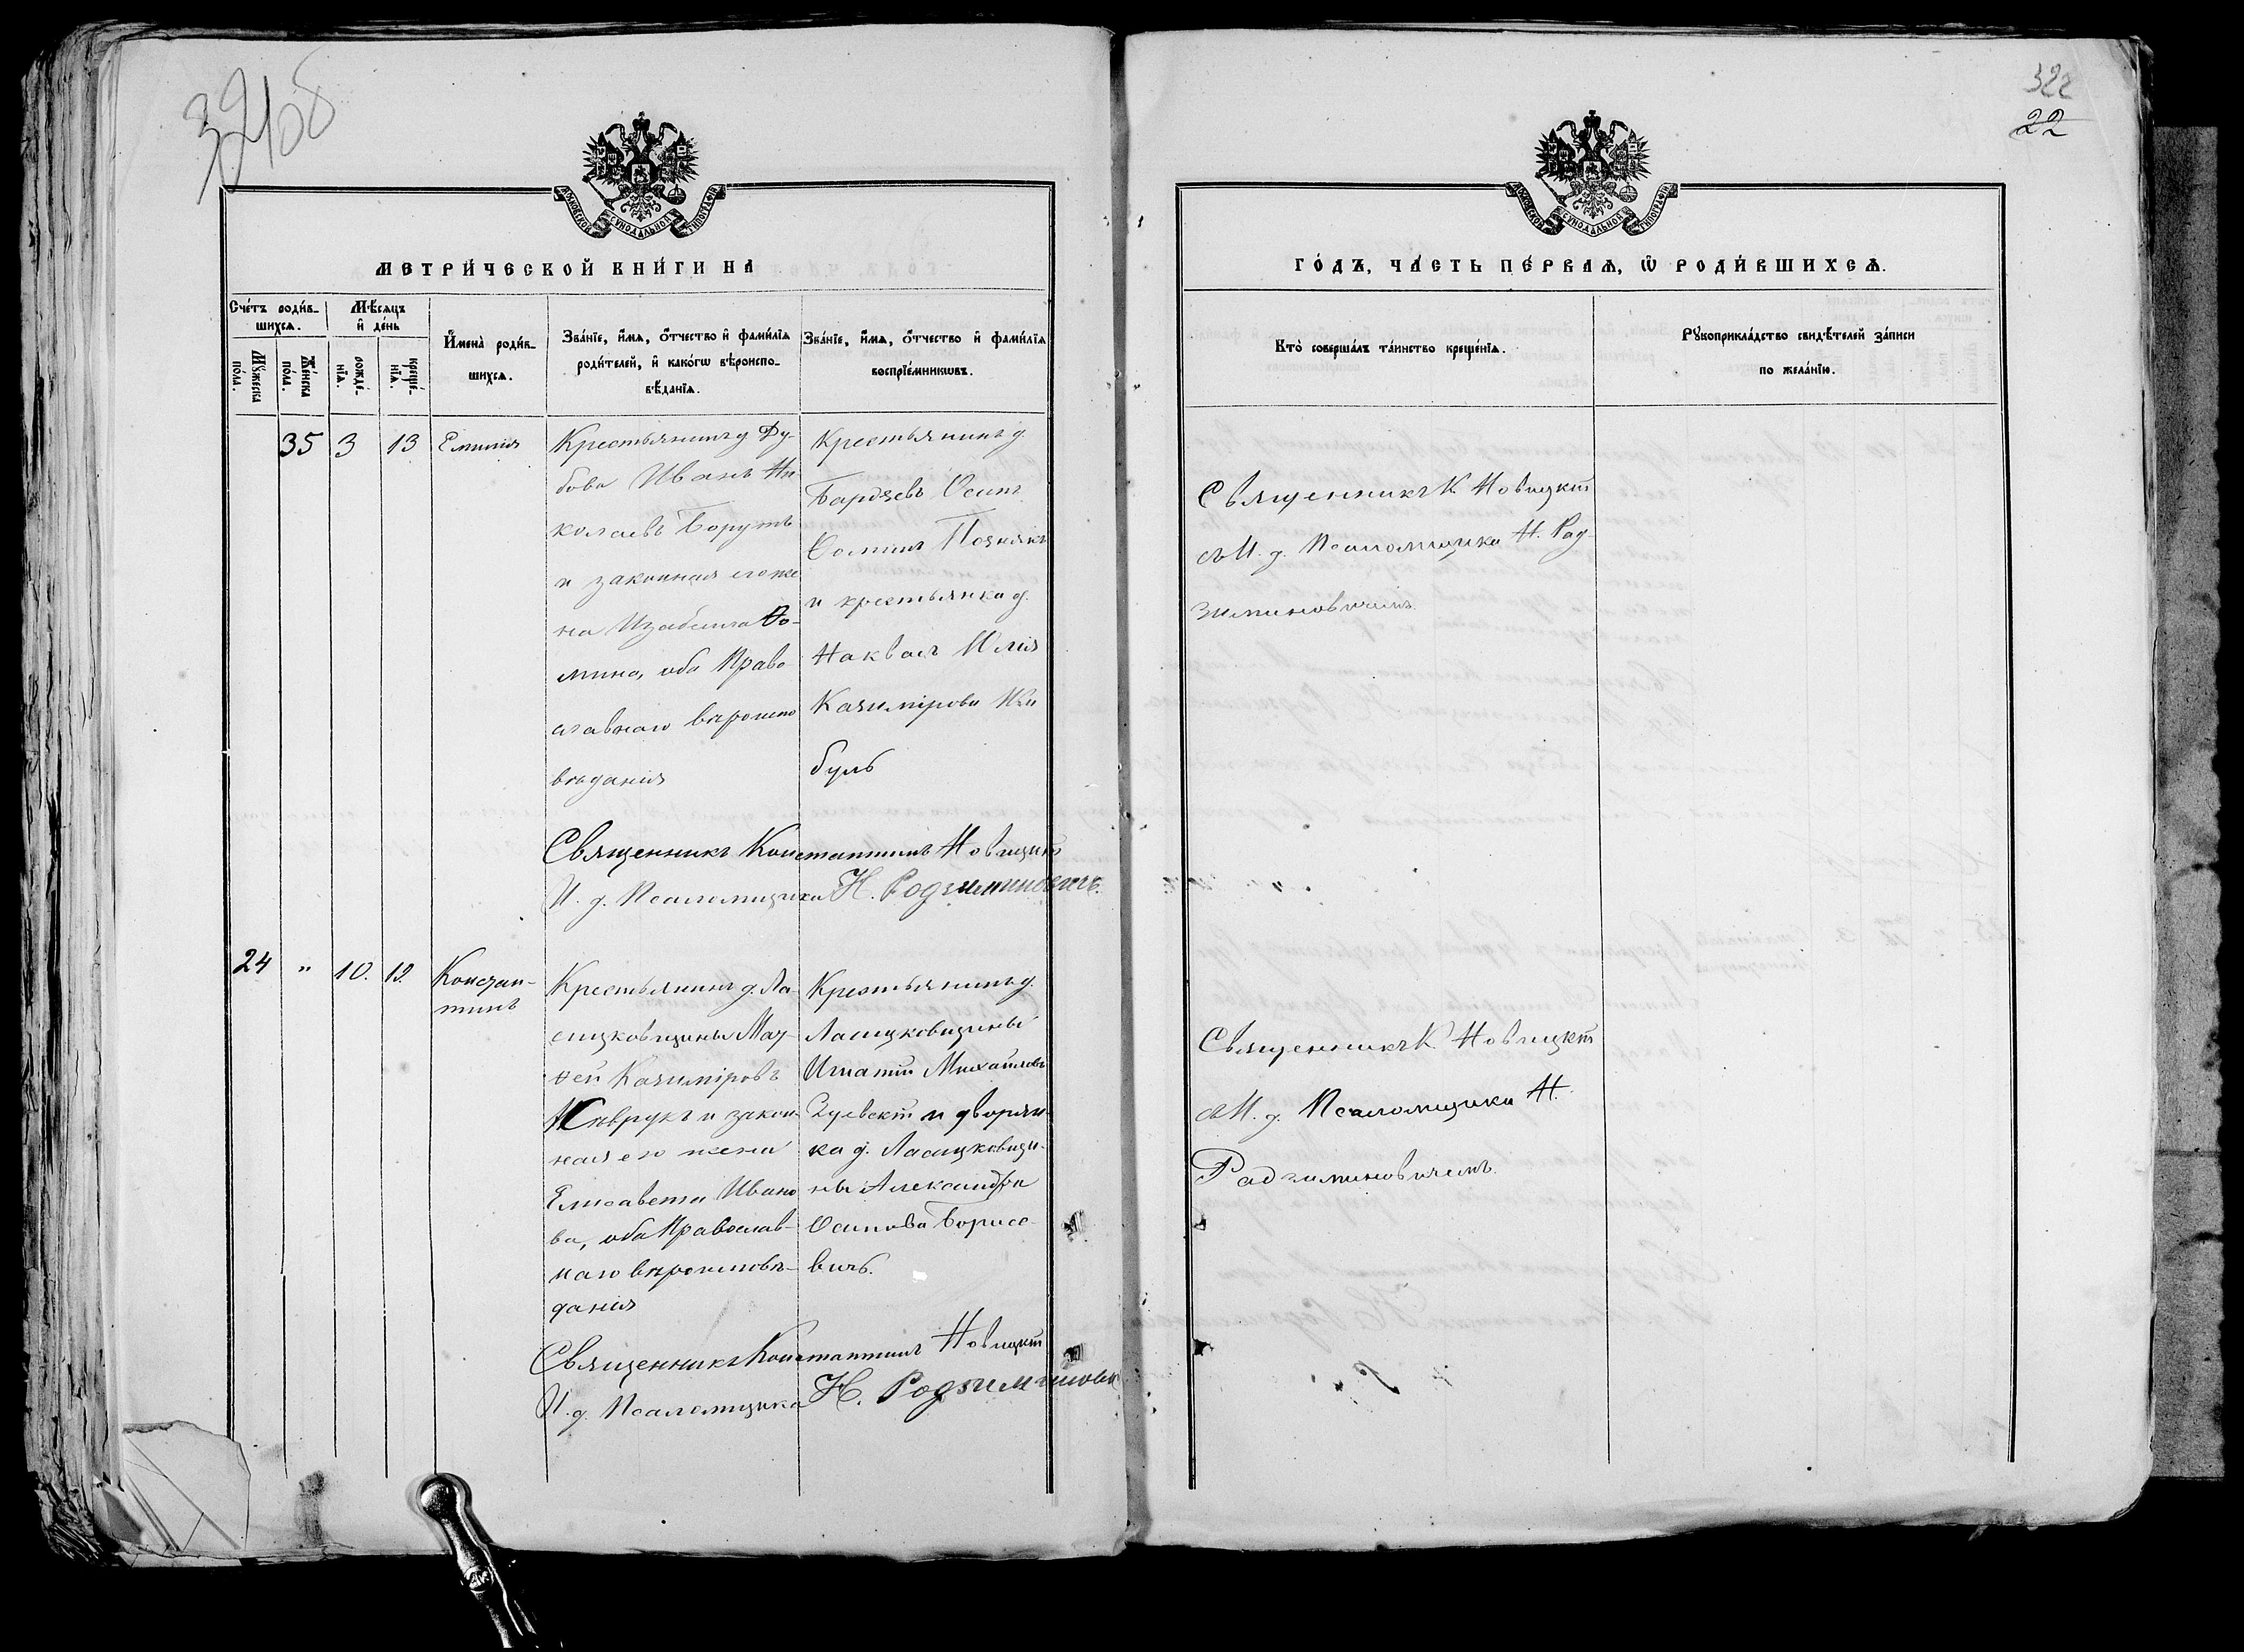 322
22
МОСКОВСКОЙ СУНОДАЛЬНОЙ ТИПОГРАФIИ
МЕТРИ́ЧЕСКОЙ КНИ́ГИ НА
Сче́тъ роди́в-
шихсѧ.
Мѣ́сѧцъ
и҆ де́нь
Мꙋ́жеска
по́ла.
Же́нска
по́ла.
рожде́-
нїѧ.
креще́-
нїѧ.
И҆мена̀ роди́в-
шихсѧ.
Зва́нїе, и҆́мѧ, ѻ҆́тчество и҆ фами́лїѧ
роди́телей, и҆ како́гѡ вѣ̀роиспо-
вѣ́данїѧ.
Зва́нїе, и҆́мѧ, ѻ҆́тчество и҆ фами́лїѧ
воспрїе́мникѡвъ.
35 3 13 Емилія
Крестьянинъ д. Ду-
бова Иванъ Ни
колаевъ Борутъ
и законная его же
на Изабелла Ѳо-
мина, оба Право
славнаго вѣроиспо
вѣданія
Крестьянинъ д.
Бардзевъ Осипъ
Ѳоминъ Познякъ
и крестьянка д.
Наквасъ Юлія
Казимірова
буль
Священникъ Константинъ Новицкій
И. д. Псаломщика Н. Родзиминовичъ.
24 " 10. 12. Констан-
тинъ
Крестьянинъ д. Ла-
сицковщины Мат-
ѳей Казиміровъ
и закон-
ная его жена
Елисавета Ивано
ва, оба Православ-
наго вѣроисповѣ-
данія
Крестьянинъ д.
Ласицковщины
Игнатій Михайловъ
и дворян-
ка д. Ласицковщи-
ны Александра
Осипова Борисе-
вичъ.
Священникъ Константинъ Новицкій
И. д. Псаломщика Н. Родзиминович
МОСКОВСКОЙ СУНОДАЛЬНОЙ ТИПОГРАФIИ
ГО́ДЪ, ЧА́СТЬ ПЕ́РВАѦ, Ѡ҆ РОДИ́ВШИХСѦ.
Кто̀ соверша́лъ та́инство креще́нїѧ.
Рꙋкоприкла́дство свидѣ́телей за́писи
по жела́нїю.
Священникъ К. Новицкій
съ И. д. Псаломщика Н. Рад-
зиминовичемъ.
Священникъ К. Новицкій
съ И. д. Псаломщика Н.
Радзиминовичемъ.